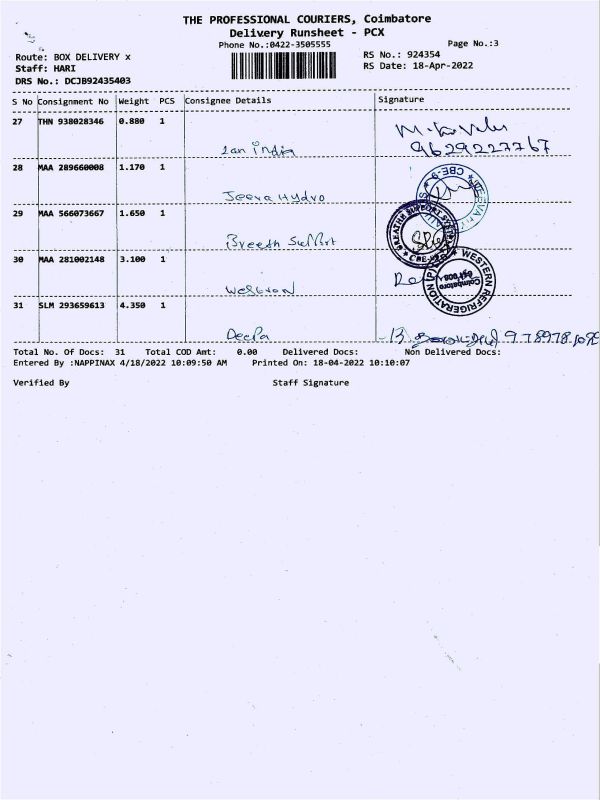 THE PROFESSIONAL COURIERS, Coimbatore
Delivery Runsheet - PCX
Phone No.:0422-3505555
Page No.:3
Route: BOX DELIVERY x
RS No.: 924354
Staff: HARI
RS Date: 18-Apr-2022
DRS No.: DCJB92435403
S No Consignment No Weight PCS Consignee Details Signature
27 THN 938028346 0.880 1
Lan india
9629227767
28 MAA 289660008 1.170 1
CBE-9
Jeeva Hydro
29 MAA 566073667 1.650 1
BREATHE SUPPORT SYSTEM
CBE
Breeth Support
30 MAA 281002148 3.100 1
WESTERN REFRIGERATION (P)
Coimbatore
Western
31 SLM 293659613 4.350 1
Deepa
Total No. Of Docs: 31 Total COD Amt: 0.00 Delivered Docs: Non Delivered Docs:
Entered By :NAPPINAX 4/18/2022 10:09:50 AM Printed On: 18-04-2022 10:10:07
Verified By Staff Signature